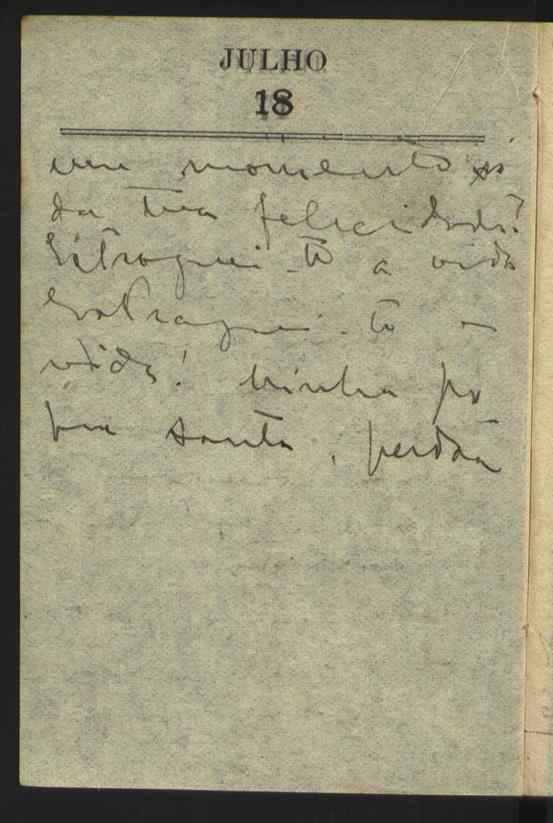 JULHO
18
um momento só
da tua felicidade?
Estraguei-te a vida
Estraguei-te a
vida! Minha po
bre santa, perdôa